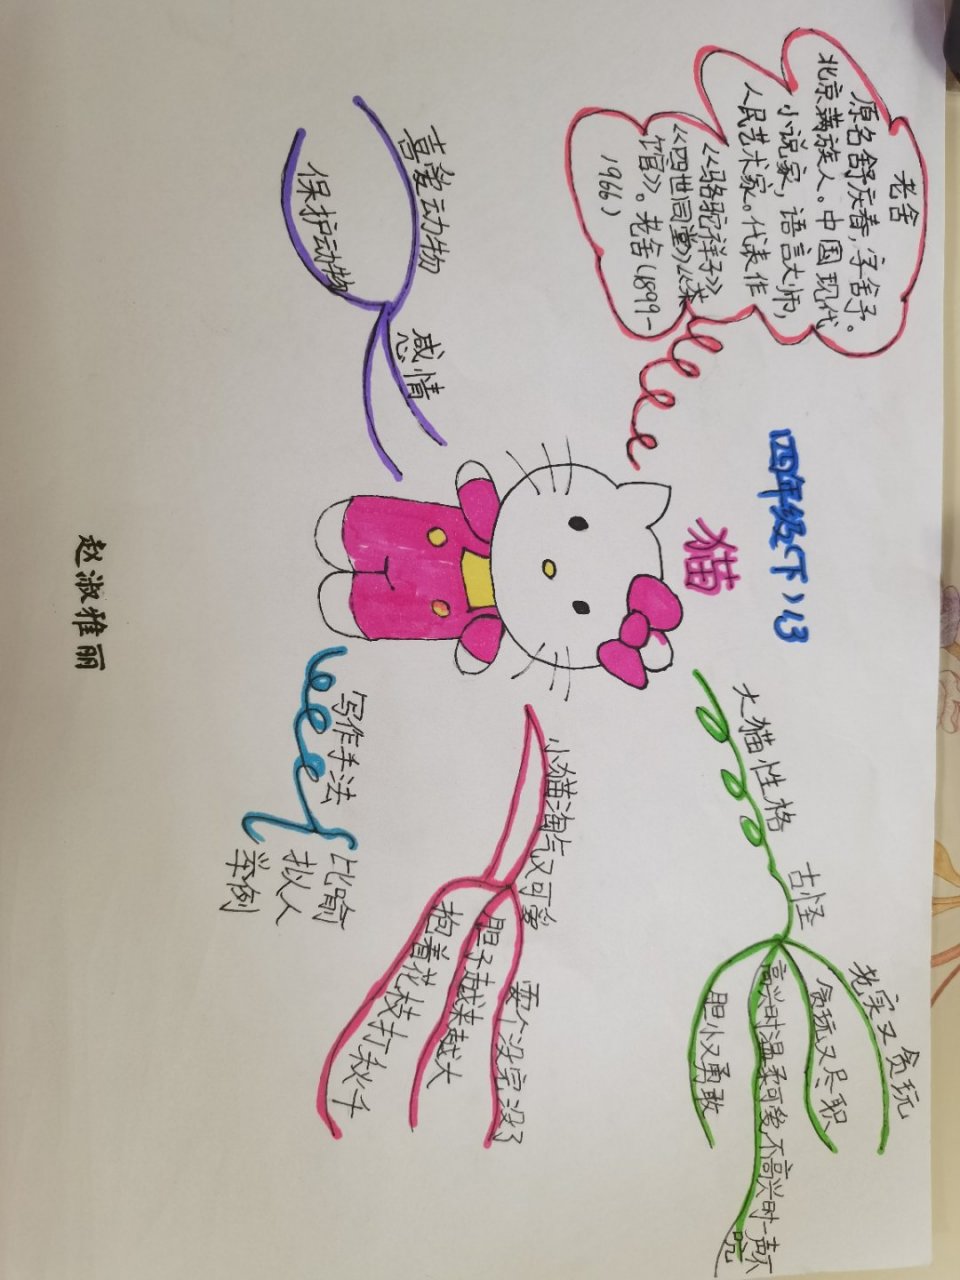 四年级(下)13
猫
老舍
原名舒庆春,字舍予。
北京满族人。中国现代
小说家,语言大师,
人民艺术家。代表作
《骆驼祥子》
《四世同堂》《茶
馆》。老舍(1899-
1966)
大猫性格
古怪
老实又贪玩
贪玩又尽职
高兴时温柔可爱,不高兴时一声不
吭
胆小又勇敢
小猫淘气又可爱
耍个没完没了
胆子越来越大
抱着花枝打秋千
写作手法
比喻
拟人
举例
感情
喜爱动物
保护动物
赵淑雅丽